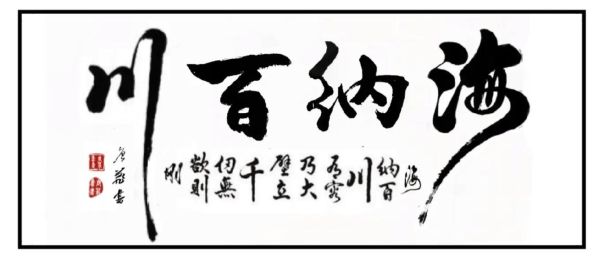 海纳百川
海
纳百
川
有容
乃大
壁立
千
仞無
欲则
刚